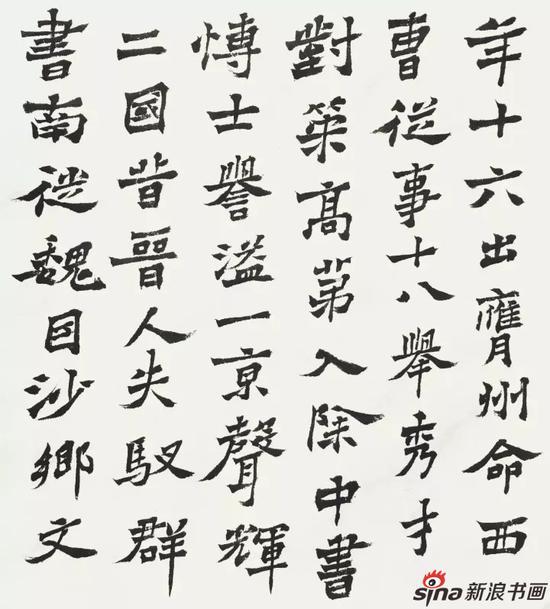 年十六出膺州命西
曹從事十八舉秀才
對策髙苐入除中書
愽士譽溢一京聲輝
二國昔晉人失馭群
書南徙魏因沙鄉文
sina新浪书画